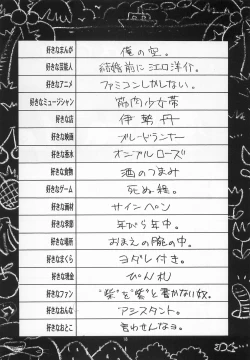 好きなまんが 俺の空。
好きな芸能人 結婚前に江口洋介。
好きなアニメ ファミコンしかしない。
好きなミュージシャン 筋肉少女帯
好きな店 伊勢丹
好きな映画 ブレードランナー
好きな香水 オンブルローズ
好きな食物 酒のつまみ
好きなゲーム 死ぬ程。
好きな画材 サインペン
好きな季節 年がら年中。
好きな場所 おまえの腕の中。
好きなまくら ヨダレ付き。
好きな現金 ぴん札
好きなファン "柴"を"紫"と書かない奴。
好きなおんな アシスタント。
好きなおとこ 言わせんなョ。